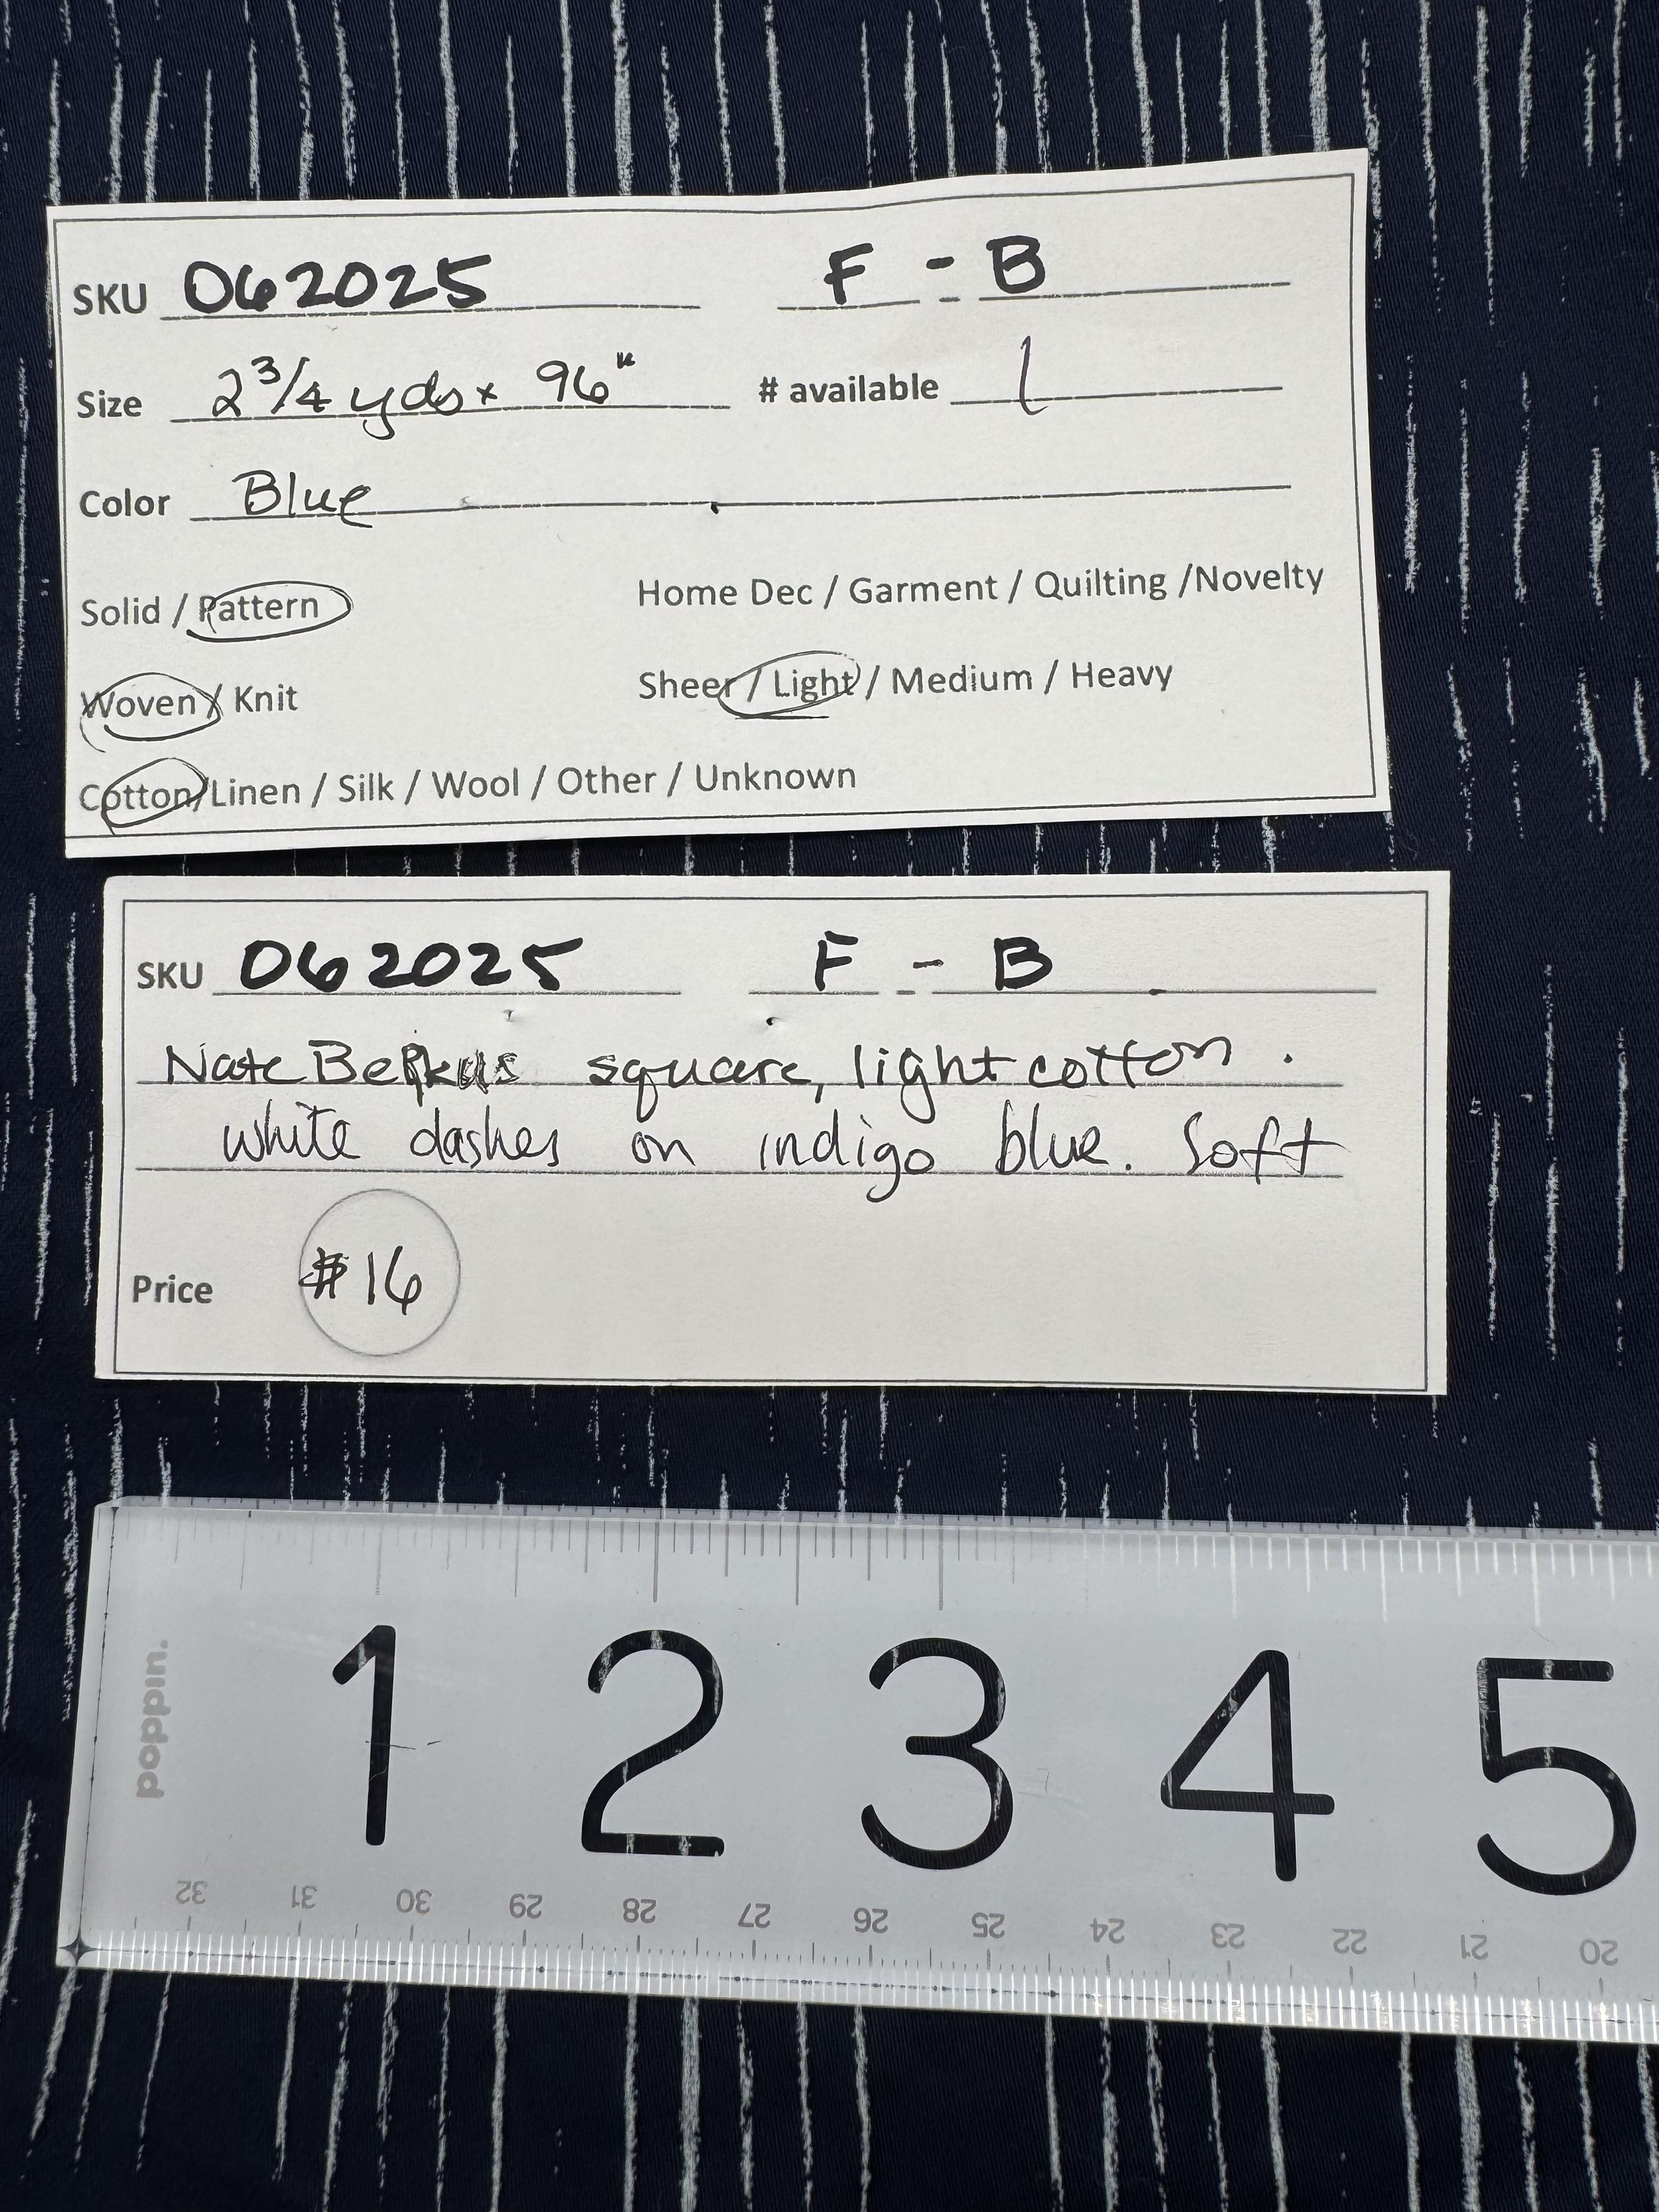 SKU 062025 F - B
Size 2 3/4 yds x 96" # available 1
Color Blue
Solid / Pattern Home Dec / Garment / Quilting /Novelty
Woven / Knit Sheer / Light / Medium / Heavy
Cotton/Linen / Silk / Wool / Other / Unknown
SKU 062025 F - B
Nate Berkus square, light cotton.
white dashes on indigo blue. Soft
Price $16
poppin.
1 2 3 4 5
32 31 30 29 28 27 26 25 24 23 22 21 20